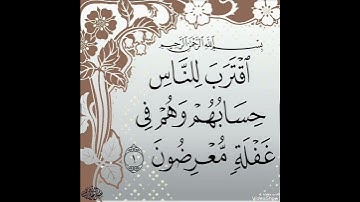 بِسْمِ ٱللَّهِ ٱلرَّحْمَٰنِ ٱلرَّحِيمِ
ٱقْتَرَبَ لِلنَّاسِ
حِسَابُهُمْ وَهُمْ فِى
غَفْلَةٍ مُّعْرِضُونَ ١